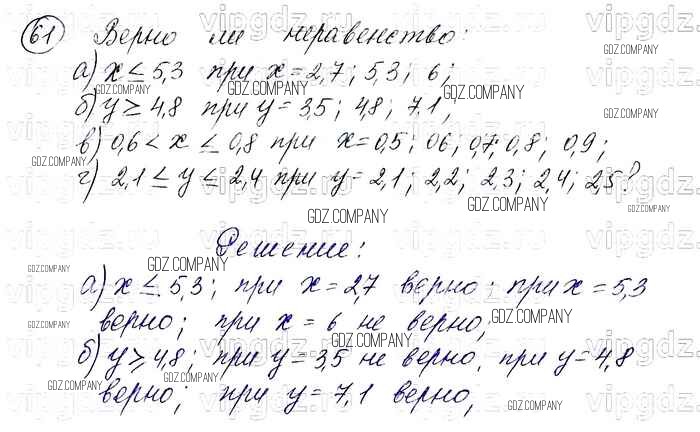 61 Верно ли неравенство:
а) x ≤ 5,3 при x = 2,7; 5,3; 6;
б) y ≥ 4,8 при y = 3,5; 4,8; 7.1;
в) 0,6 < x ≤ 0,8 при x = 0,5; 06; 0,7; 0,8; 0,9;
г) 2,1 ≤ y ≤ 2,4 при y = 2,1; 2,2; 2,3; 2,4; 2,5?
Решение:
а) x ≤ 5,3; при x = 2,7 верно; при x = 5,3
верно; при x = 6 не верно,
б) y ≥ 4,8; при y = 3,5 не верно, при y = 4,8
верно; при y = 7,1 верно,